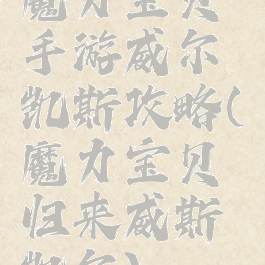 魔力宝贝
手游威尔
凯斯攻略(
魔力宝贝
归来威斯
凯尔)